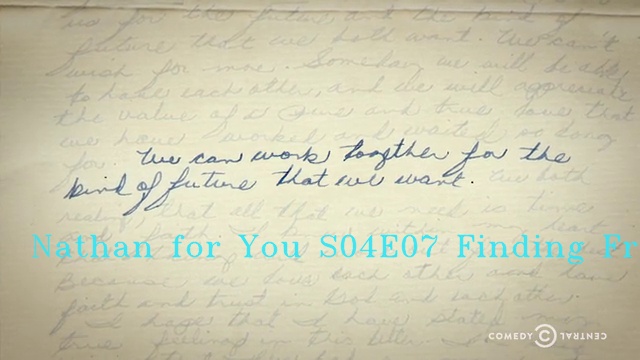 us for the future and the kind of
future that we both want. We can't
wish for more. Someday we will be able
to have each other, and we will appreciate
the value of a fine and true love that
we have worked and waited so long
for. We can work together for the
kind of future that we want. We both
realize that all that we need is time
Nathan for You S04E07 Finding Fr
Because we love each other and have
faith and trust in God and each other.
I hope that I have stated my
true feelings in this letter.
COMEDY CENTRAL